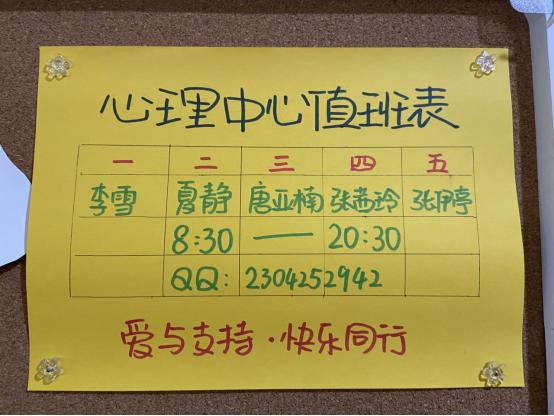 心理中心值班表
一 二 三 四 五
李雪 夏静 唐亚楠 张茜玲 张伊亭
8:30 — 20:30
QQ: 2304252942
爱与支持·快乐同行